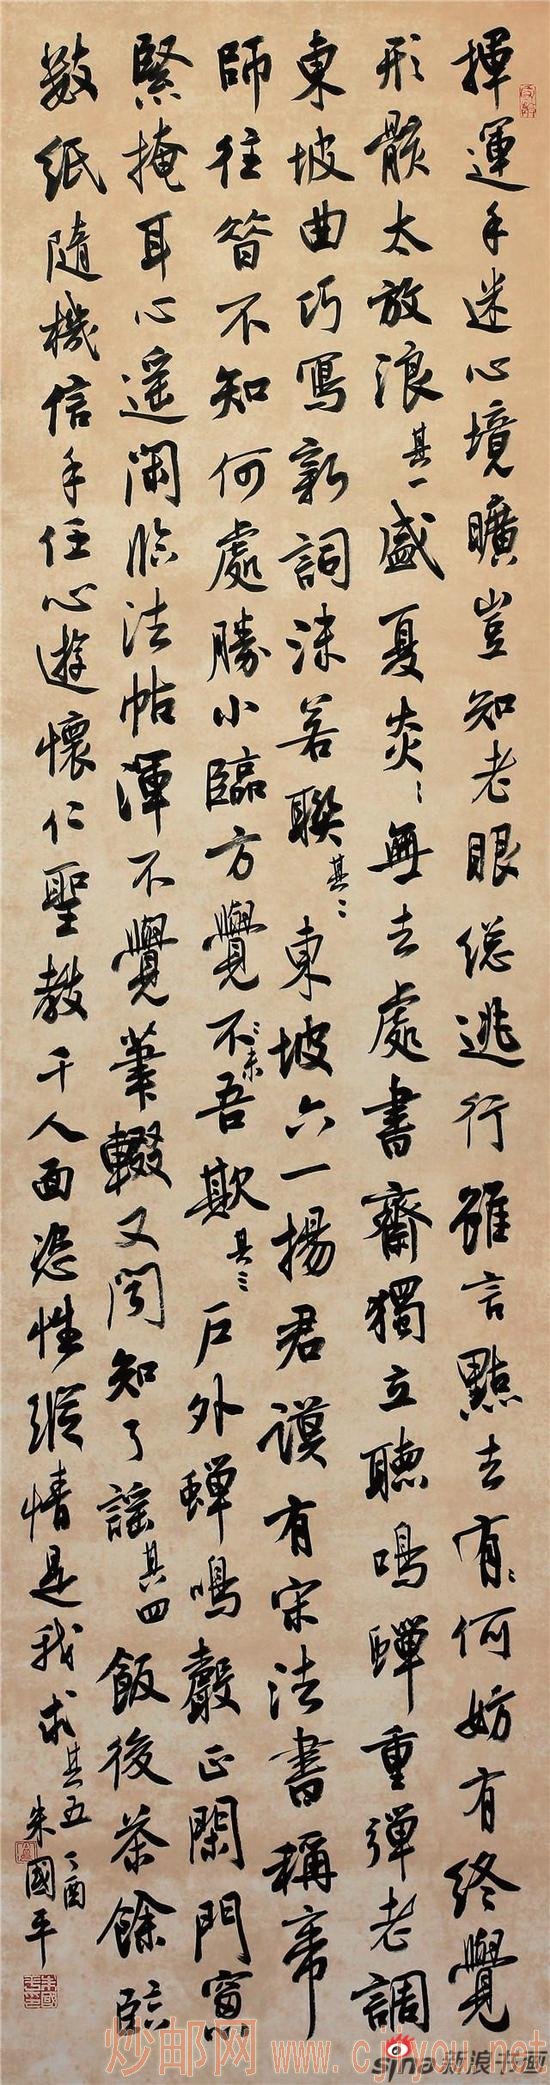 揮運手迷心境曠豈知老眼總逃行雖言點去有〻何妨有終覺
形骸太放浪其一盛夏炎〻無去處書齋獨立聽鳴蟬重彈老調
東坡曲巧寫新詞沫若聯其二東坡六一揚君謨有宋法書稱帝
師往昔不知何處勝小臨方覺不〻未吾欺其三戶外蟬鳴聲正閑門窗
緊掩耳心遥閑臨法帖渾不覺筆輟又聞知了謡其四飯後茶餘臨
數紙隨機信手任心遊懷仁聖教千人面恣性縱情是我求其五丁酉
朱國平
炒邮网 www.cjiyou.net
sina新浪书画